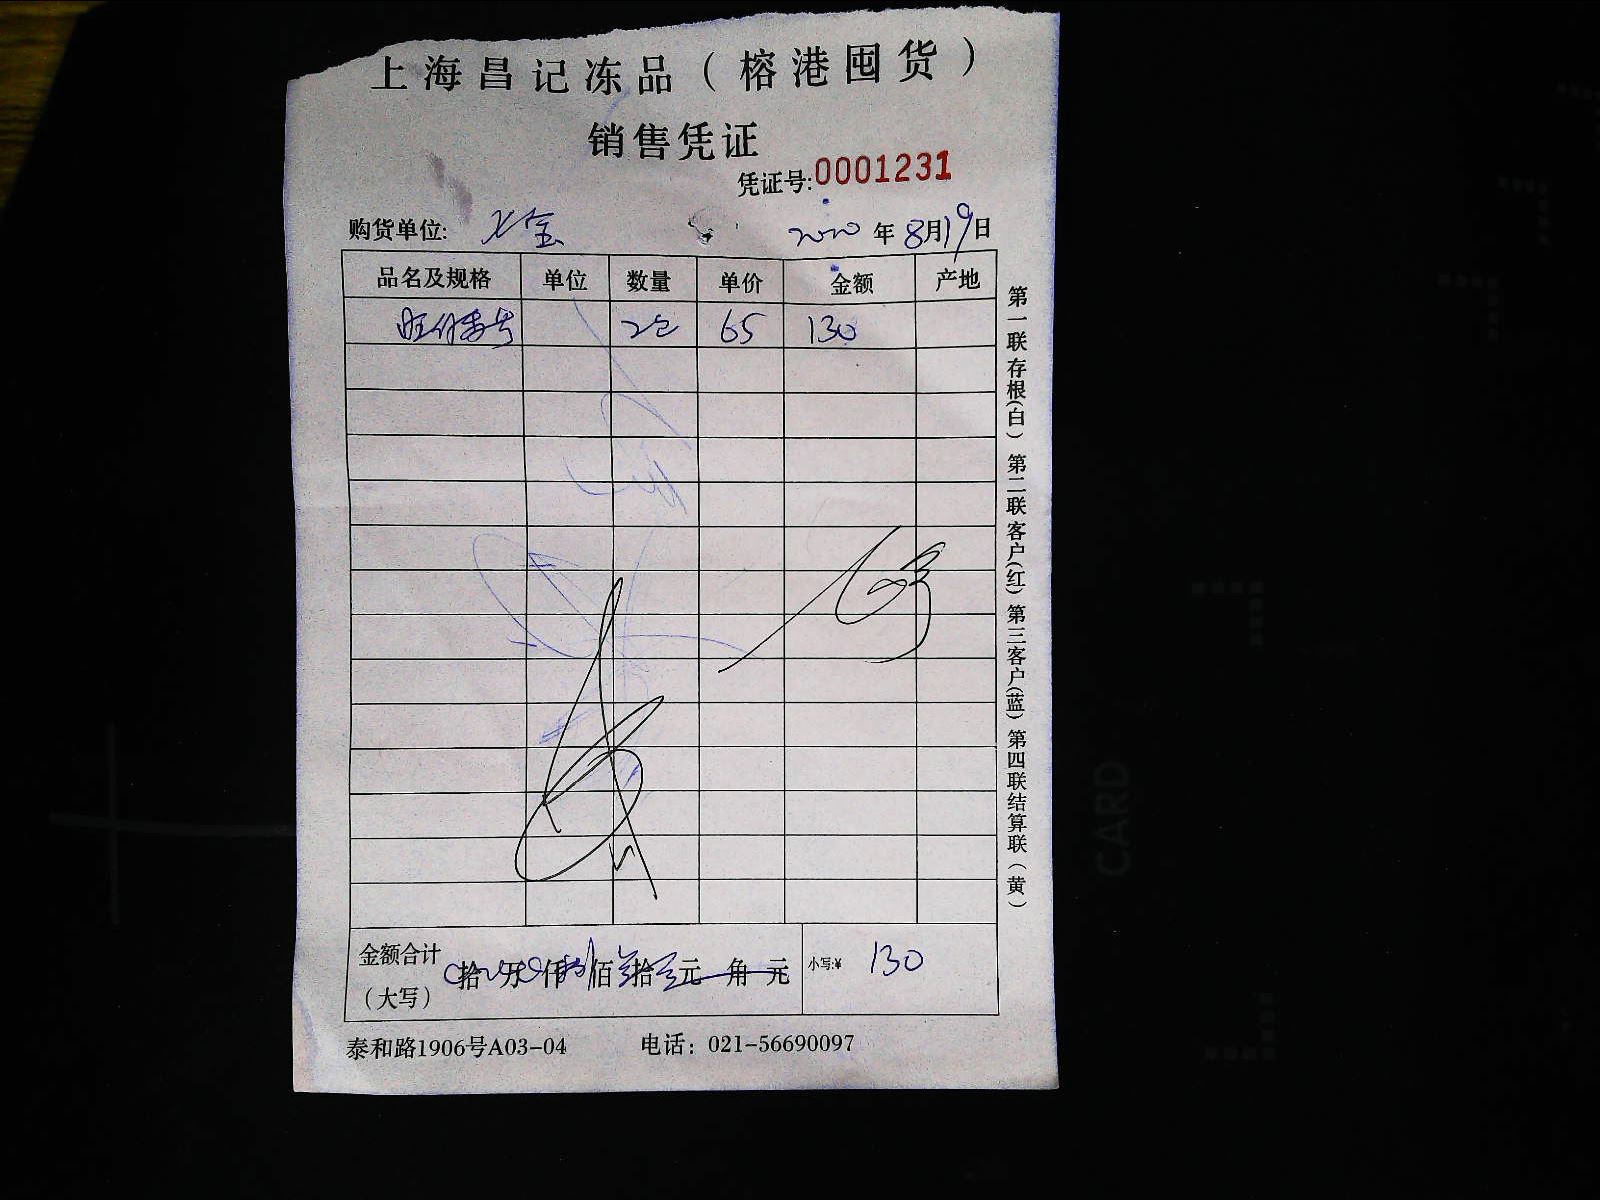 上海昌记冻品（榕港囤货）
销售凭证
凭证号:0001231
购货单位: 2020年8月19日
品名及规格 单位 数量 单价 金额 产地
65 130
金额合计（大写） 拾 万 仟 佰 拾 元 角 元 小写:¥ 130
泰和路1906号A03-04 电话：021-56690097
第一联存根(白) 第二联客户(红) 第三客户(蓝) 第四联结算联(黄)
CARD